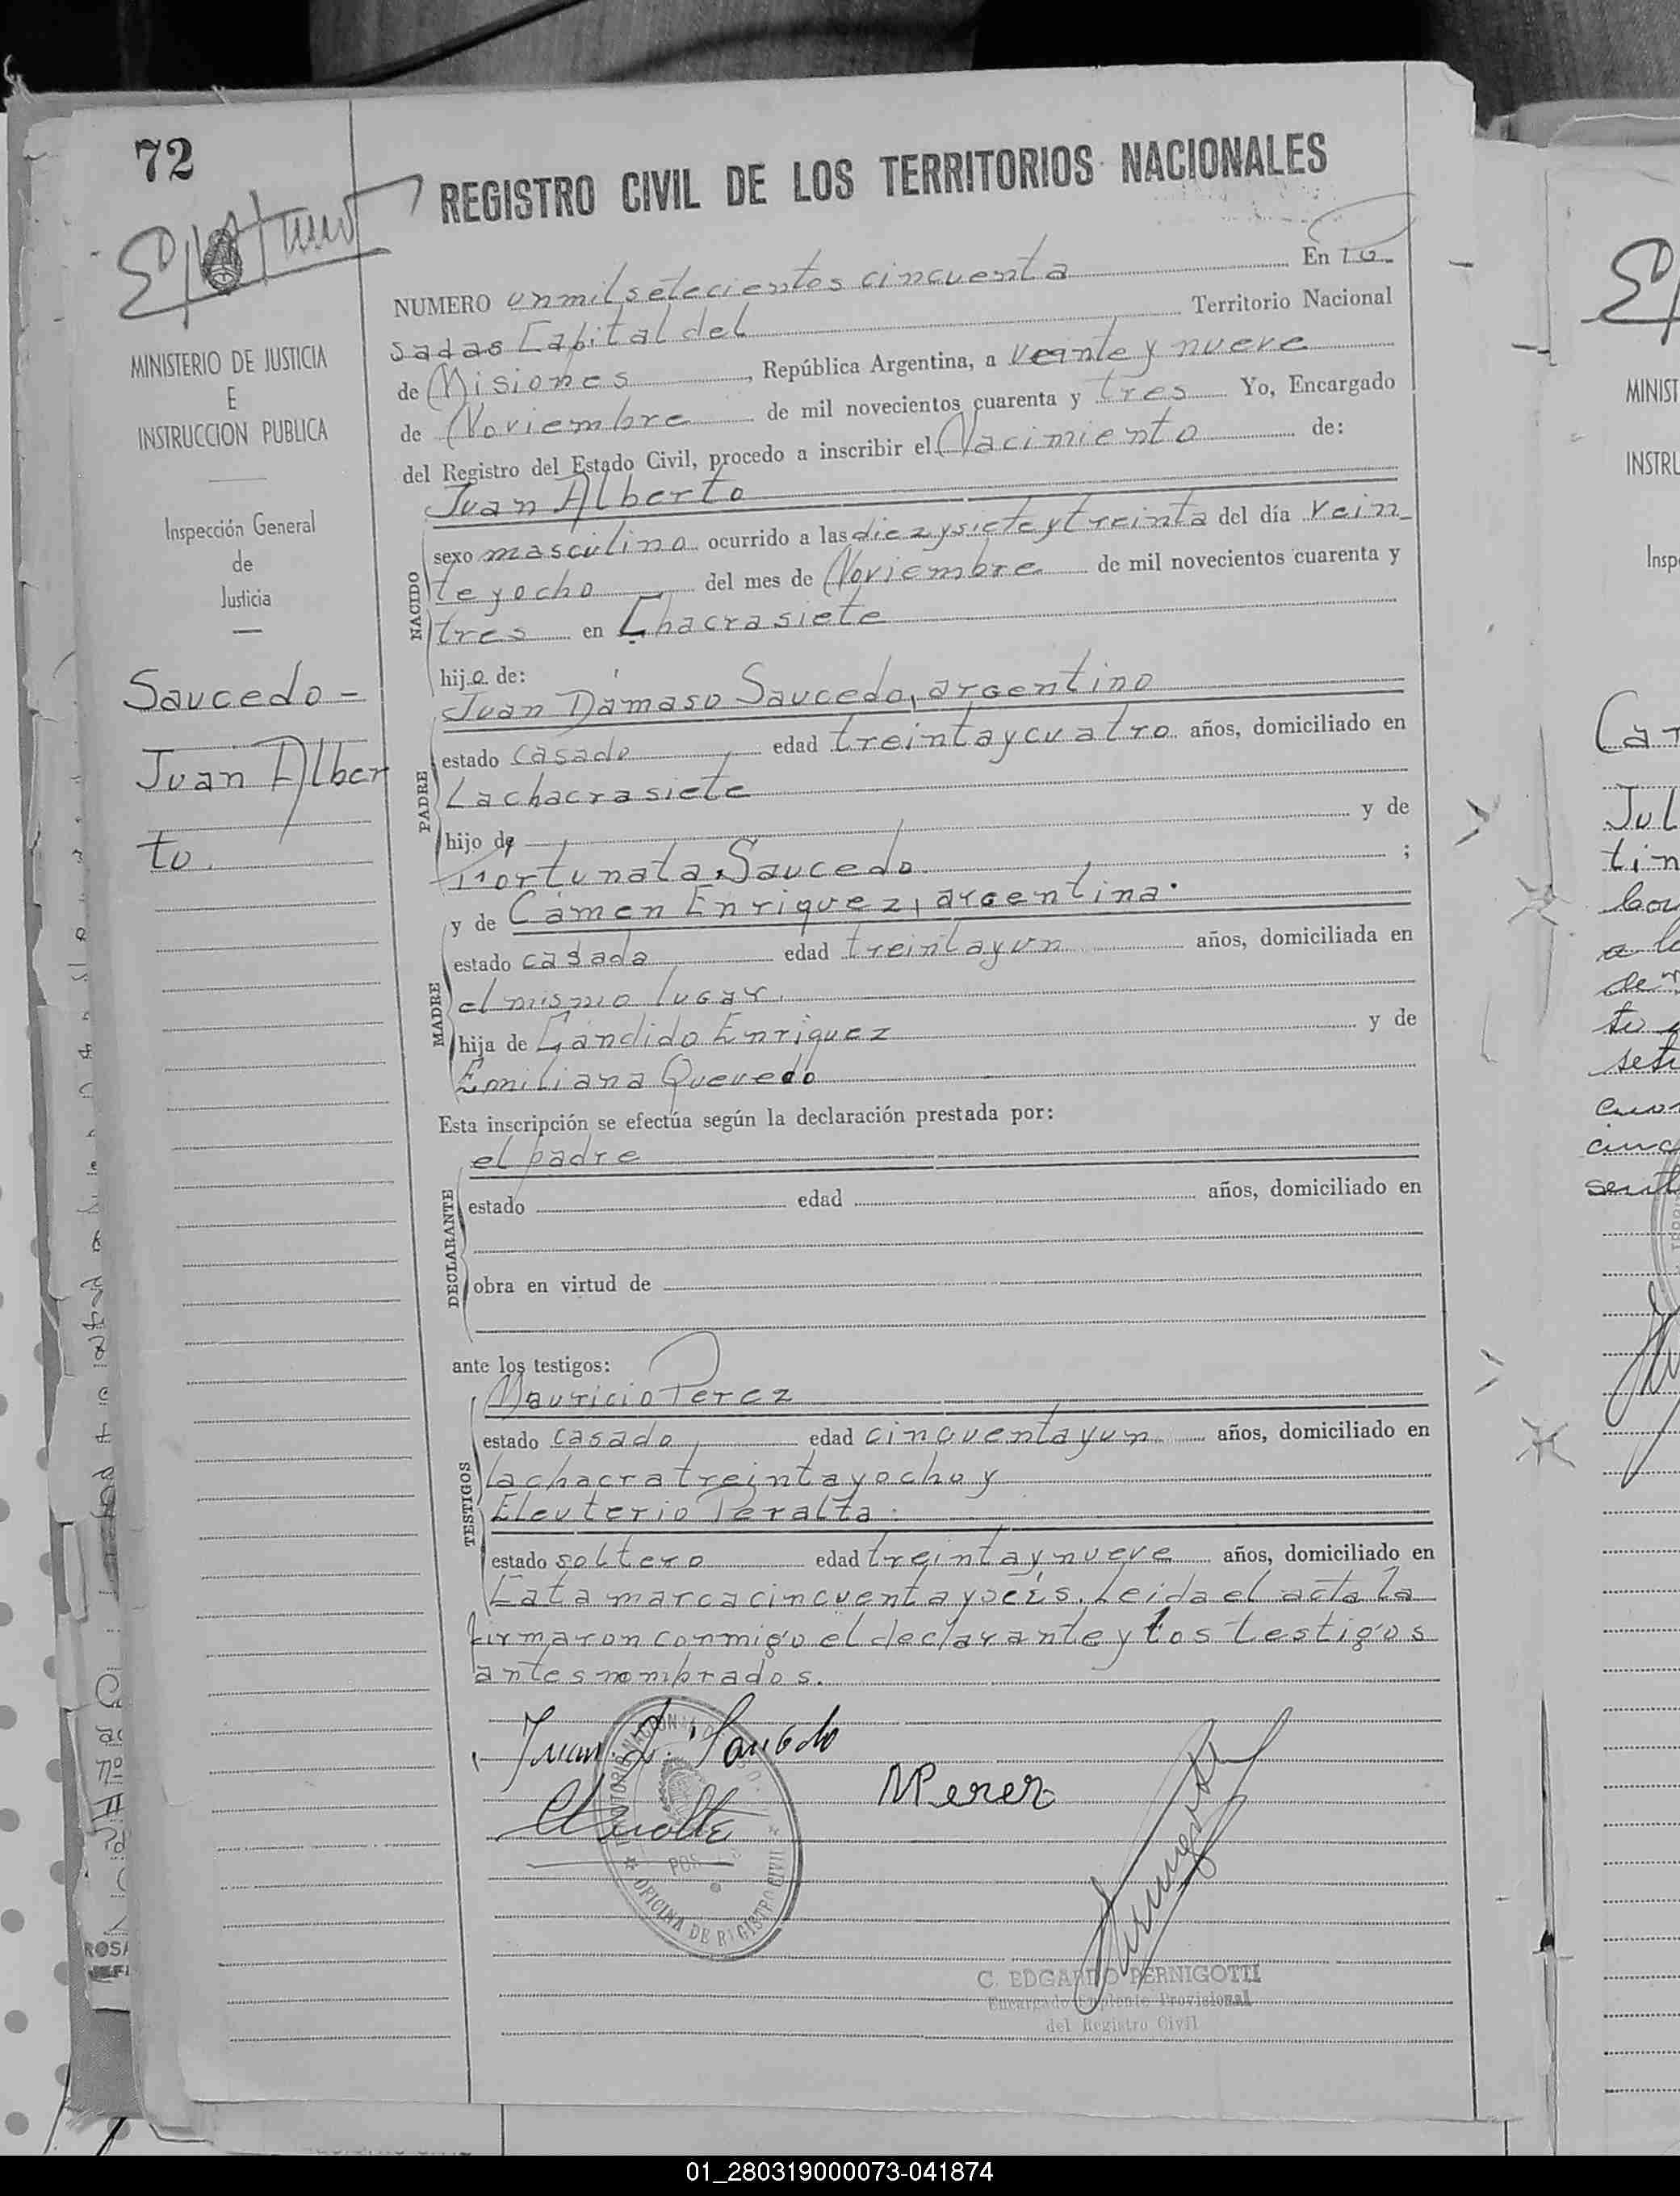 72
REGISTRO CIVIL DE LOS TERRITORIOS NACIONALES
NUMERO un mil setecientos cincuenta En Po-
sadas Capital del Territorio Nacional
de Misiones, República Argentina, a veinte y nueve
de Noviembre de mil novecientos cuarenta y tres Yo, Encargado
del Registro del Estado Civil, procedo a inscribir el Nacimiento de:
MINISTERIO DE JUSTICIA
E
INSTRUCCION PUBLICA
Inspección General
de
Justicia
Saucedo-
Juan Alber
to.
NACIDO
Juan Alberto
sexo masculino ocurrido a las diez y siete y treinta del día vein_
te y ocho del mes de Noviembre de mil novecientos cuarenta y
tres en Chacra siete
hijo de:
PADRE
Juan Dámaso Saucedo, argentino
estado casado edad treinta y cuatro años, domiciliado en
La chacra siete
hijo de y de
Fortunata Saucedo ;
MADRE
y de Cámen Enriquez, argentina.
estado casada edad treinta y un años, domiciliada en
el mismo lugar.
hija de Cándido Enriquez y de
Emiliana Quevedo
Esta inscripción se efectúa según la declaración prestada por:
DECLARANTE
el padre
estado edad años, domiciliado en
obra en virtud de
ante los testigos:
TESTIGOS
Mauricio Perez
estado casado edad cincuenta y un años, domiciliado en
la chacra treinta y ocho y
Eleuterio Peralta.
estado soltero edad treinta y nueve años, domiciliado en
Catamarca cincuenta y seis. Leida el acta la
firmaron conmigo el declarante y los testigos
antes nombrados.
Juan D. Saucedo
MPerez
OFICINA DE REGISTRO CIVIL
C. EDGARDO PERNIGOTTI
Encargado Suplente Provisional
del Registro Civil
MINIST
INSTRU
Insp
Car
Jul
tin
01_280319000073-041874